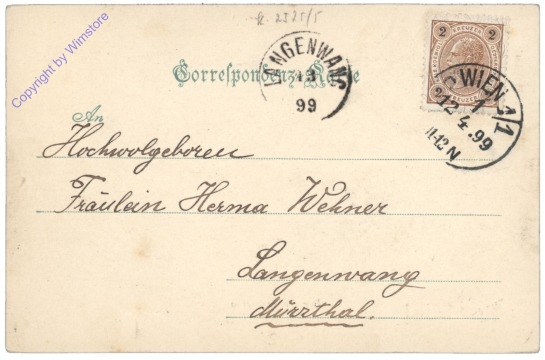 k. 2525/5
Copyright by Wimstore
2 KREUZER 2
LANGENWANG
13
99
WIEN 1/1
1
12 4.99
11-12N
Correspondenz-Karte
An
Hochwolgeboren
Fräulein Herma Wehner
Langenwang
Mürzthal.